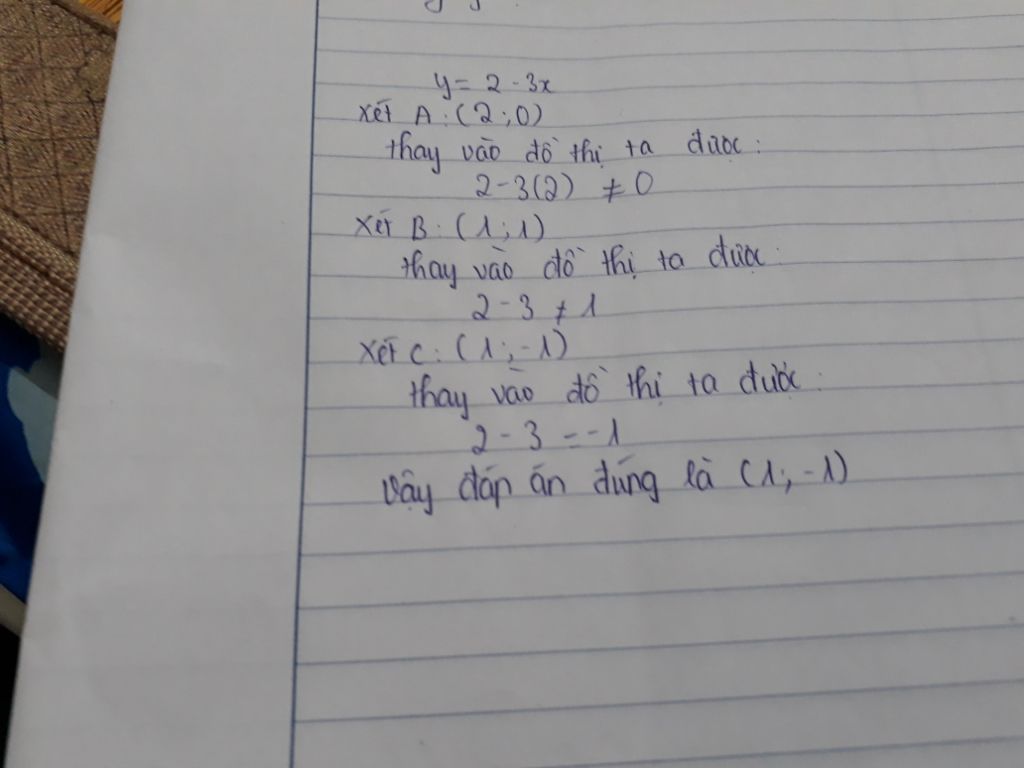 y = 2 - 3x
Xét A: (2;0)
thay vào đồ thị ta được:
2-3(2) ≠ 0
Xét B: (1;1)
thay vào đồ thị ta được:
2 - 3 ≠ 1
Xét C: (1;-1)
thay vào đồ thị ta được:
2 - 3 = -1
Vậy đáp án đúng là (1;-1)